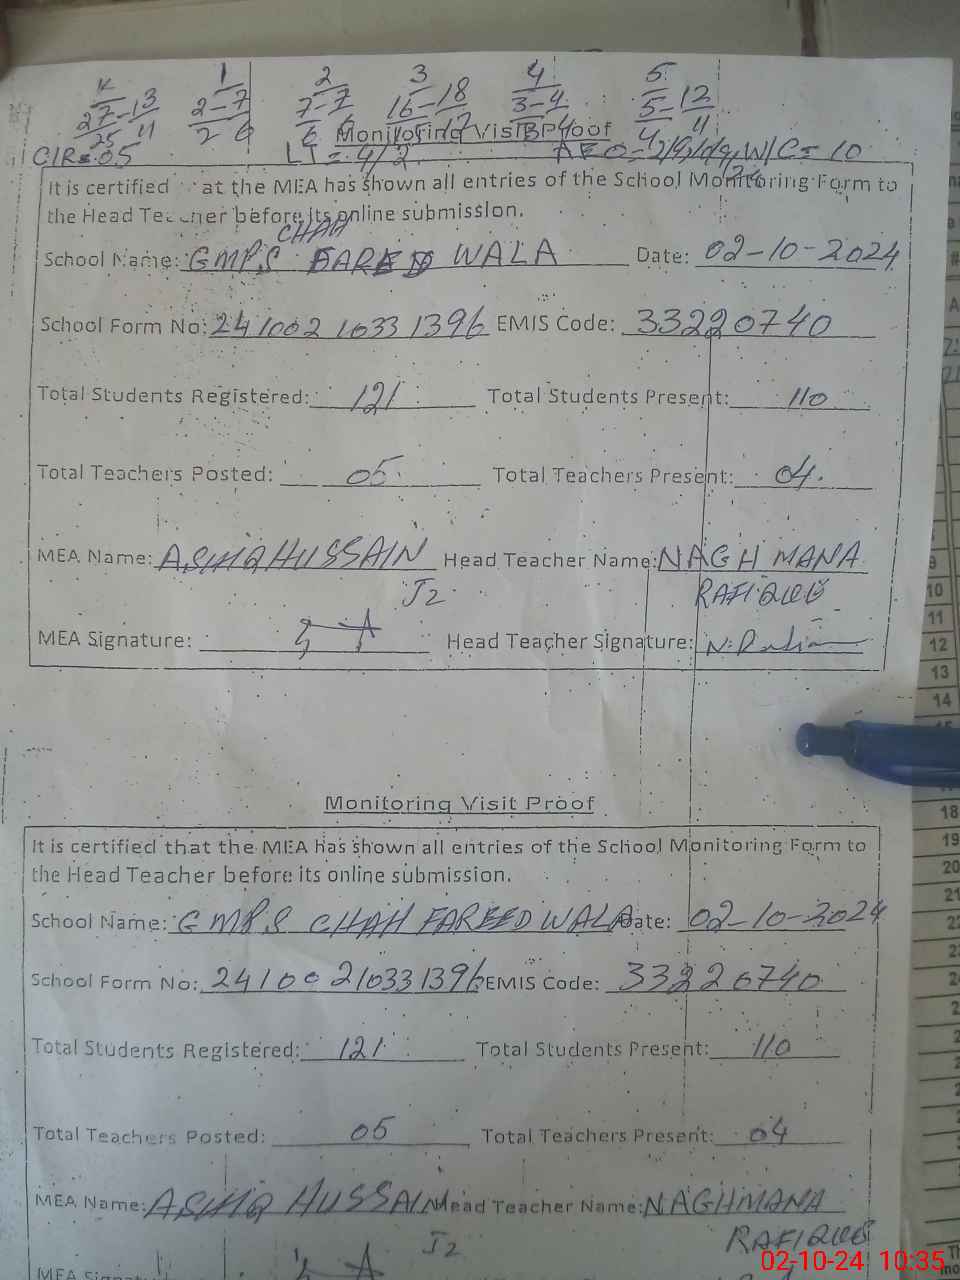 K 1 2 3 4 5
27-13 2-7 7-7 16-18 3-4 5-12
25 11 2 6 6 6 17 4 4 11
Monitoring Visit Proof
CIR=05 LT=4/2 AEO= W/C=10
It is certified at the MEA has shown all entries of the School Monitoring Form to
the Head Teacher before its online submission.
CHAH
School Name: GMPS FAREED WALA Date: 02-10-2024
School Form No: 24100210331396 EMIS Code: 33220740
Total Students Registered: 121 Total Students Present: 110
Total Teachers Posted: 05 Total Teachers Present: 04.
MEA Name: ASHIQ HUSSAIN Head Teacher Name: NAGHMANA
J2 RAFIQUE
MEA Signature: Head Teacher Signature:
Monitoring Visit Proof
It is certified that the MEA has shown all entries of the School Monitoring Form to
the Head Teacher before its online submission.
School Name: GMPS CHAH FAREED WALA Date: 02-10-2024
School Form No: 24100210331396 EMIS Code: 33220740
Total Students Registered: 121 Total Students Present: 110
Total Teachers Posted: 05 Total Teachers Present: 04
MEA Name: ASHIQ HUSSAIN Head Teacher Name: NAGHMANA
J2 RAFIQUE
MEA
9
10
11
12
13
14
18
19
20
21
02-10-24 10:35